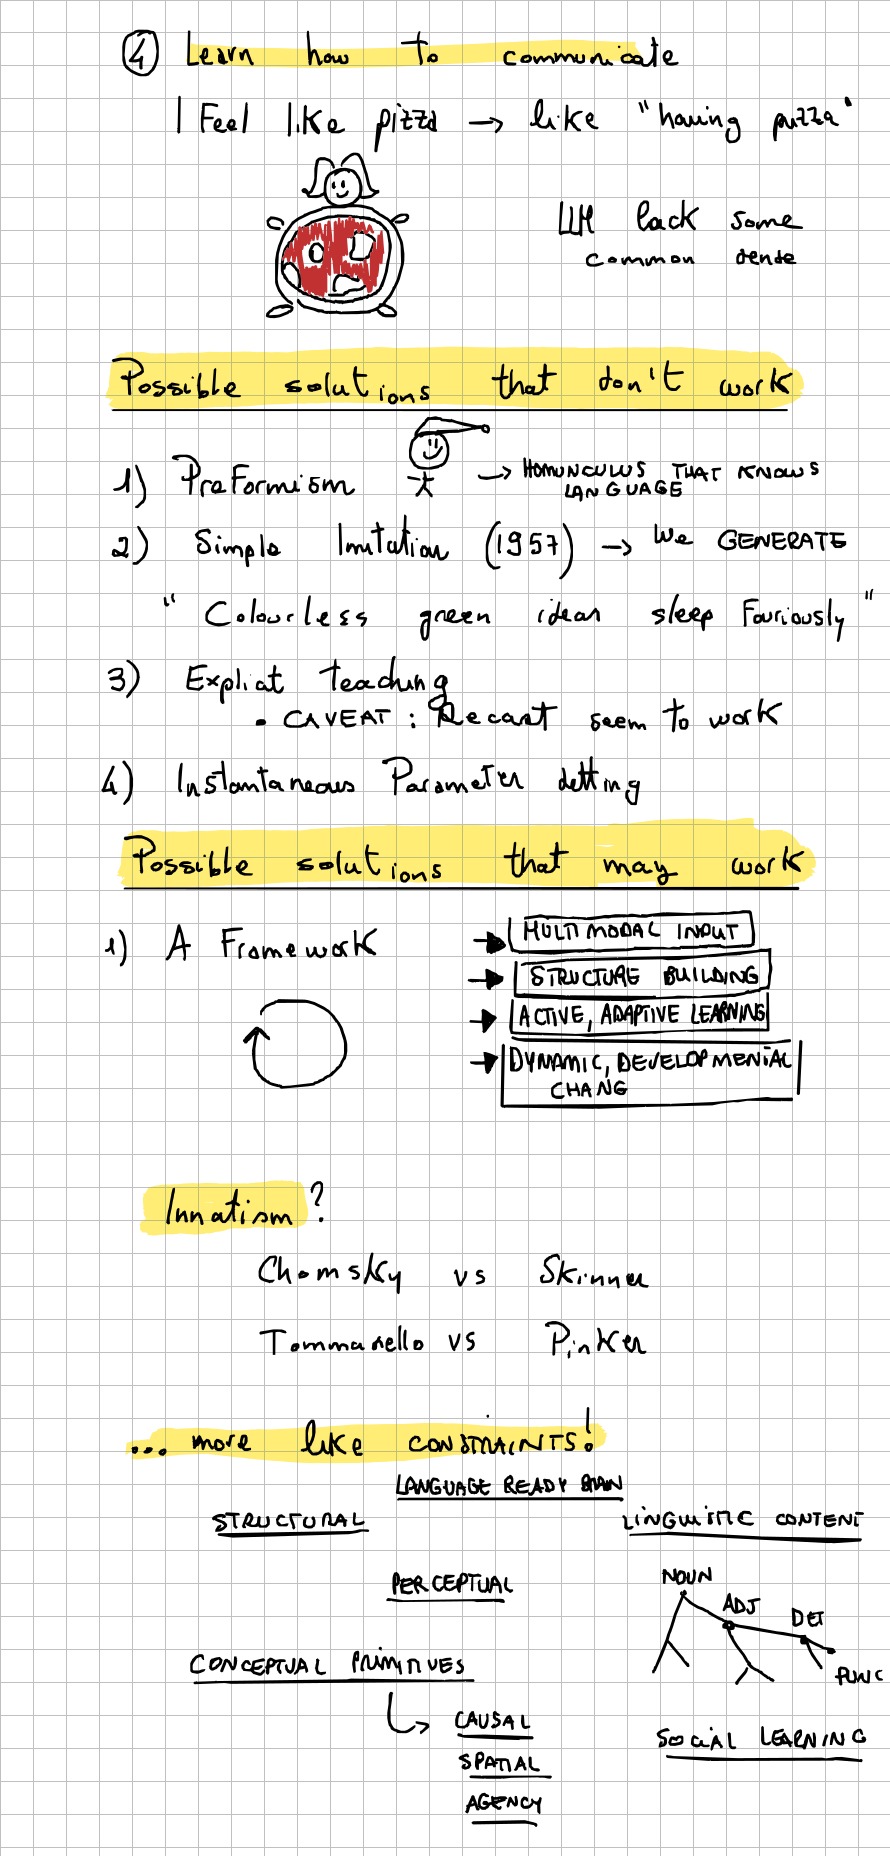 4 Learn how to communicate
I Feel like pizza → like "having pizza"
LLM lack some
common sense
Possible solutions that don't work
1) Preformism → HOMUNCULUS THAT KNOWS
LANGUAGE
2) Simple Imitation (1957) → We GENERATE
" Colourless green ideas sleep Fouriously "
3) Explicit teaching
• CAVEAT : Recast seem to work
4) Instantaneous Parameter setting
Possible solutions that may work
1) A Framework
→ MULTIMODAL INPUT
→ STRUCTURE BUILDING
→ ACTIVE, ADAPTIVE LEARNING
→ DYNAMIC, DEVELOPMENTAL
CHANG
Innatism?
Chomsky vs Skinner
Tommasello vs Pinker
... more like CONSTRAINTS!
LANGUAGE READY BRAIN
STRUCTURAL
LINGUISTIC CONTENT
PERCEPTUAL
NOUN
ADJ
DET
FUNC
CONCEPTUAL PRIMITIVES
CAUSAL
SPATIAL
AGENCY
SOCIAL LEARNING